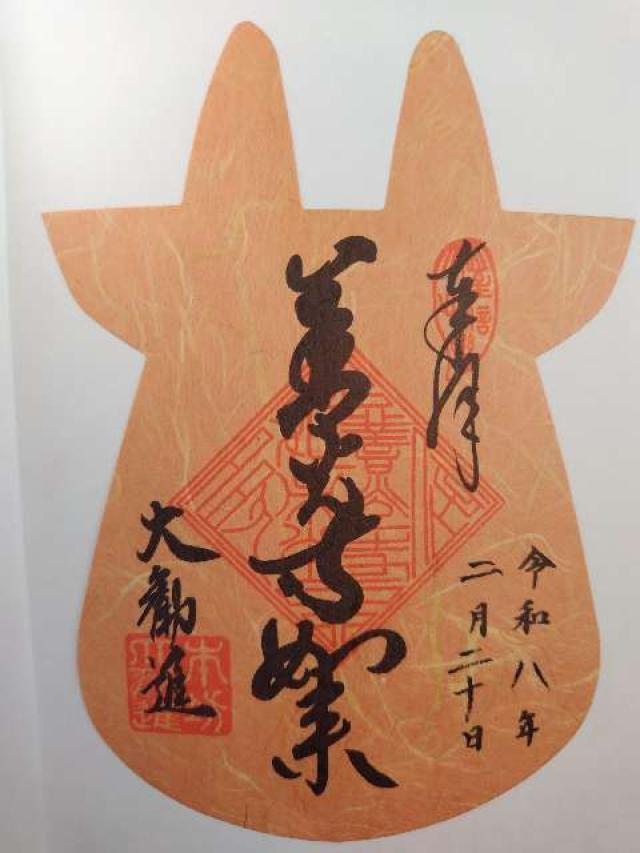 奉拝
令和八年
二月二十日
善光寺如来
大勧進